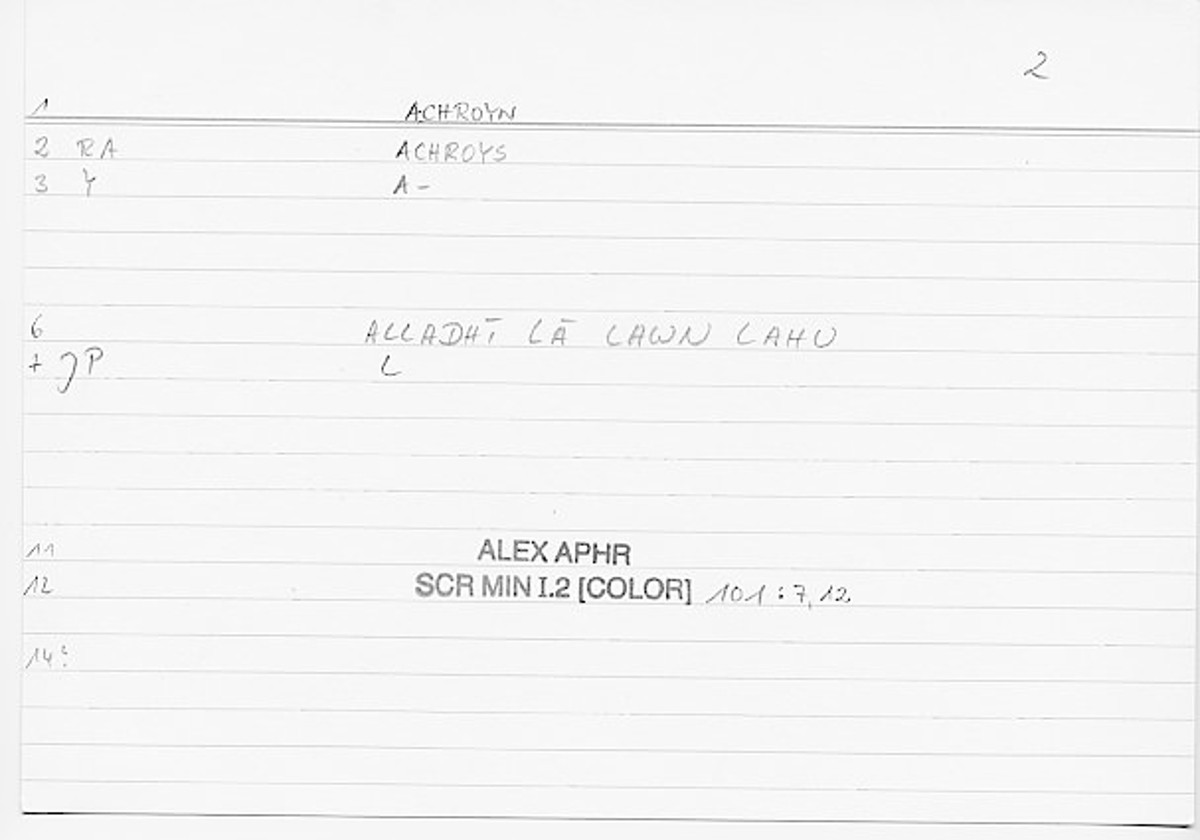 2
1 ACHROYN
2 RA ACHROYS
3 Y A-
6 ALLADHĪ LĀ LAWN LAHU
7 JP L
11 ALEX APHR
12 SCR MIN I.2 [COLOR] 101:7,12
14: